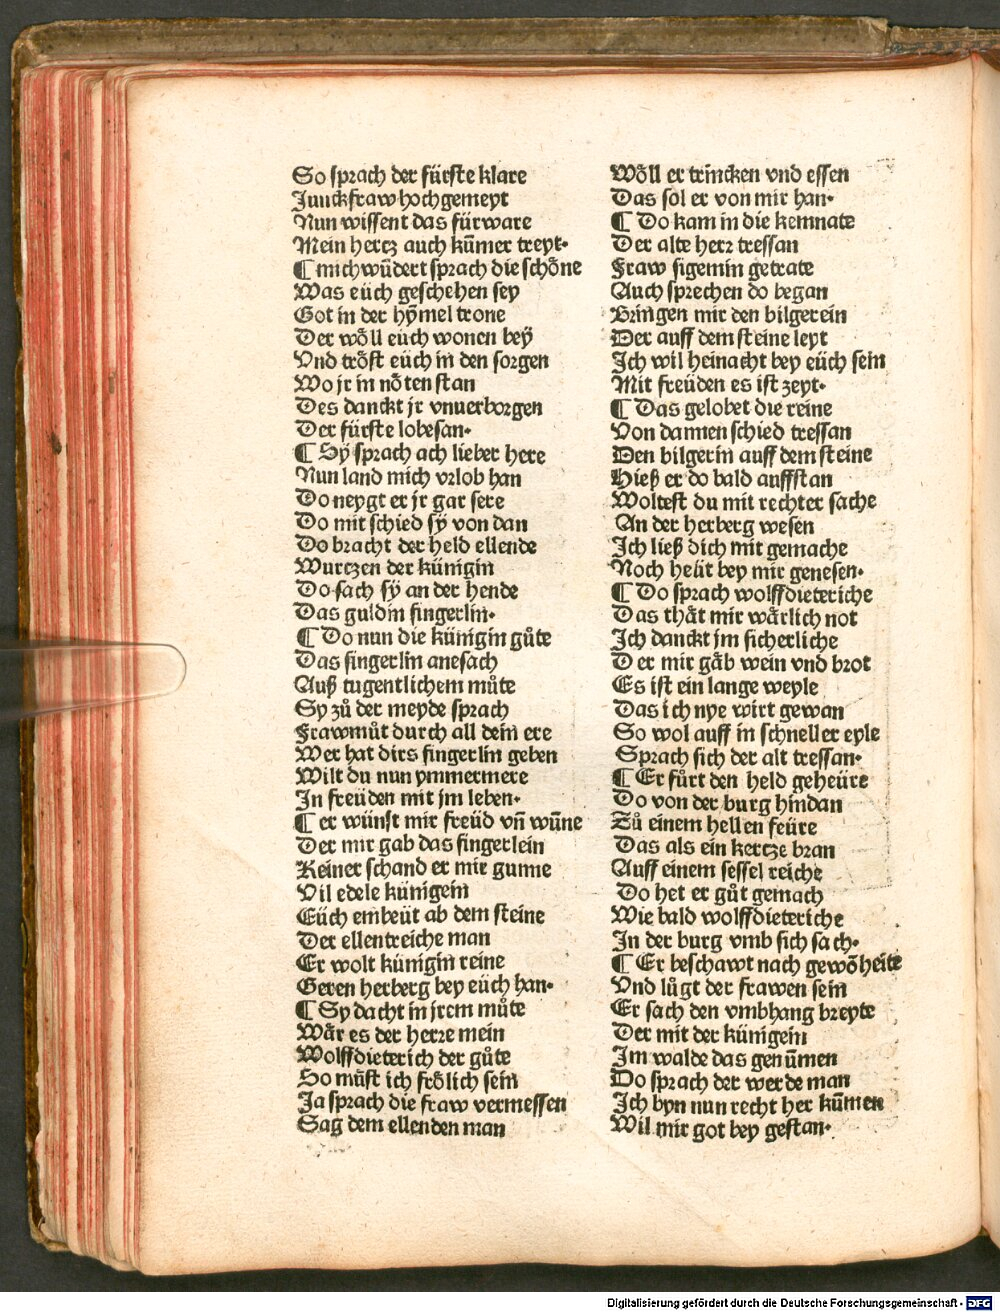 So sprach der fürste klare
Junckfraw hochgemeyt
Nun wissent das fürware
Mein hertz auch kūmer treyt·
¶ mich wūdert sprach die schöne
Was eüch geschehen sey
Got in der hymel trone
Der wöll eüch wonen bey
Vnd tröst eüch in den sorgen
Wo jr in nöten stan
Des danckt jr vnuerborgen
Der fürste lobesan·
¶ Sy sprach ach lieber here
Nun land mich vrlob han
Do neygt er jr gar sere
Do mit schied sy von dan
Do bracht der held ellende
Wurtzen der künigin
Do sach sy an der hende
Das guldin fingerlin·
¶ Do nun die künigin gůte
Das fingerlin anesach
Auß tugentlichem můte
Sy zů der meyde sprach
Frawmůt durch all dein ere
Wer hat dirs fingerlin geben
Wilt du nun ymmermere
In freüden mit jm leben·
¶ er wünst mir freüd vn̄ wūne
Der mir gab das fingerlein
Keiner schand er mir gunne
Vil edele künigein
Eüch embeüt ab dem steine
Der ellentreiche man
Er wolt künigin reine
Geren herberg bey eüch han·
¶ Sy dacht in jrem můte
Wär es der herre mein
Wolffdieterich der gůte
So můst ich frölich sein
Ja sprach die fraw vermessen
Sag dem ellenden man
Wöll er trincken vnd essen
Das sol er von mir han·
¶ Do kam in die kemnate
Der alte herr tressan
Fraw sigemin getrate
Auch sprechen do began
Bringen mir den bilgerein
Der auff dem steine leyt
Ich wil heinacht bey eüch sein
Mit freüden es ist zeyt·
¶ Das gelobet die reine
Von dannen schied tressan
Den bilgerin auff dem steine
Hieß er do bald auffstan
Woltest du mit rechter sache
An der herberg wesen
Ich ließ dich mit gemache
Noch heüt bey mir genesen·
¶ Do sprach wolffdieteriche
Das thät mir wärlich not
Ich danckt jm sicherliche
Der mir gäb wein vnd brot
Es ist ein lange weyle
Das ich nye wirt gewan
So wol auff in schneller eyle
Sprach sich der alt tressan·
¶ Er fůrt den held geheüre
Do von der burg hindan
Zů einem hellen feüre
Das als ein kertze bran
Auff einem sessel reiche
Do het er gůt gemach
Wie bald wolffdieteriche
In der burg vmb sich sach·
¶ Er beschawt nach gewōheite
Vnd lůgt der frawen sein
Er sach den vmbhang breyte
Der mit der künigein
Im walde das genūmen
Do sprach der werde man
Ich byn nun recht her kūmen
Wil mir got bey gestan·
Digitalisierung gefördert durch die Deutsche Forschungsgemeinschaft - DFG